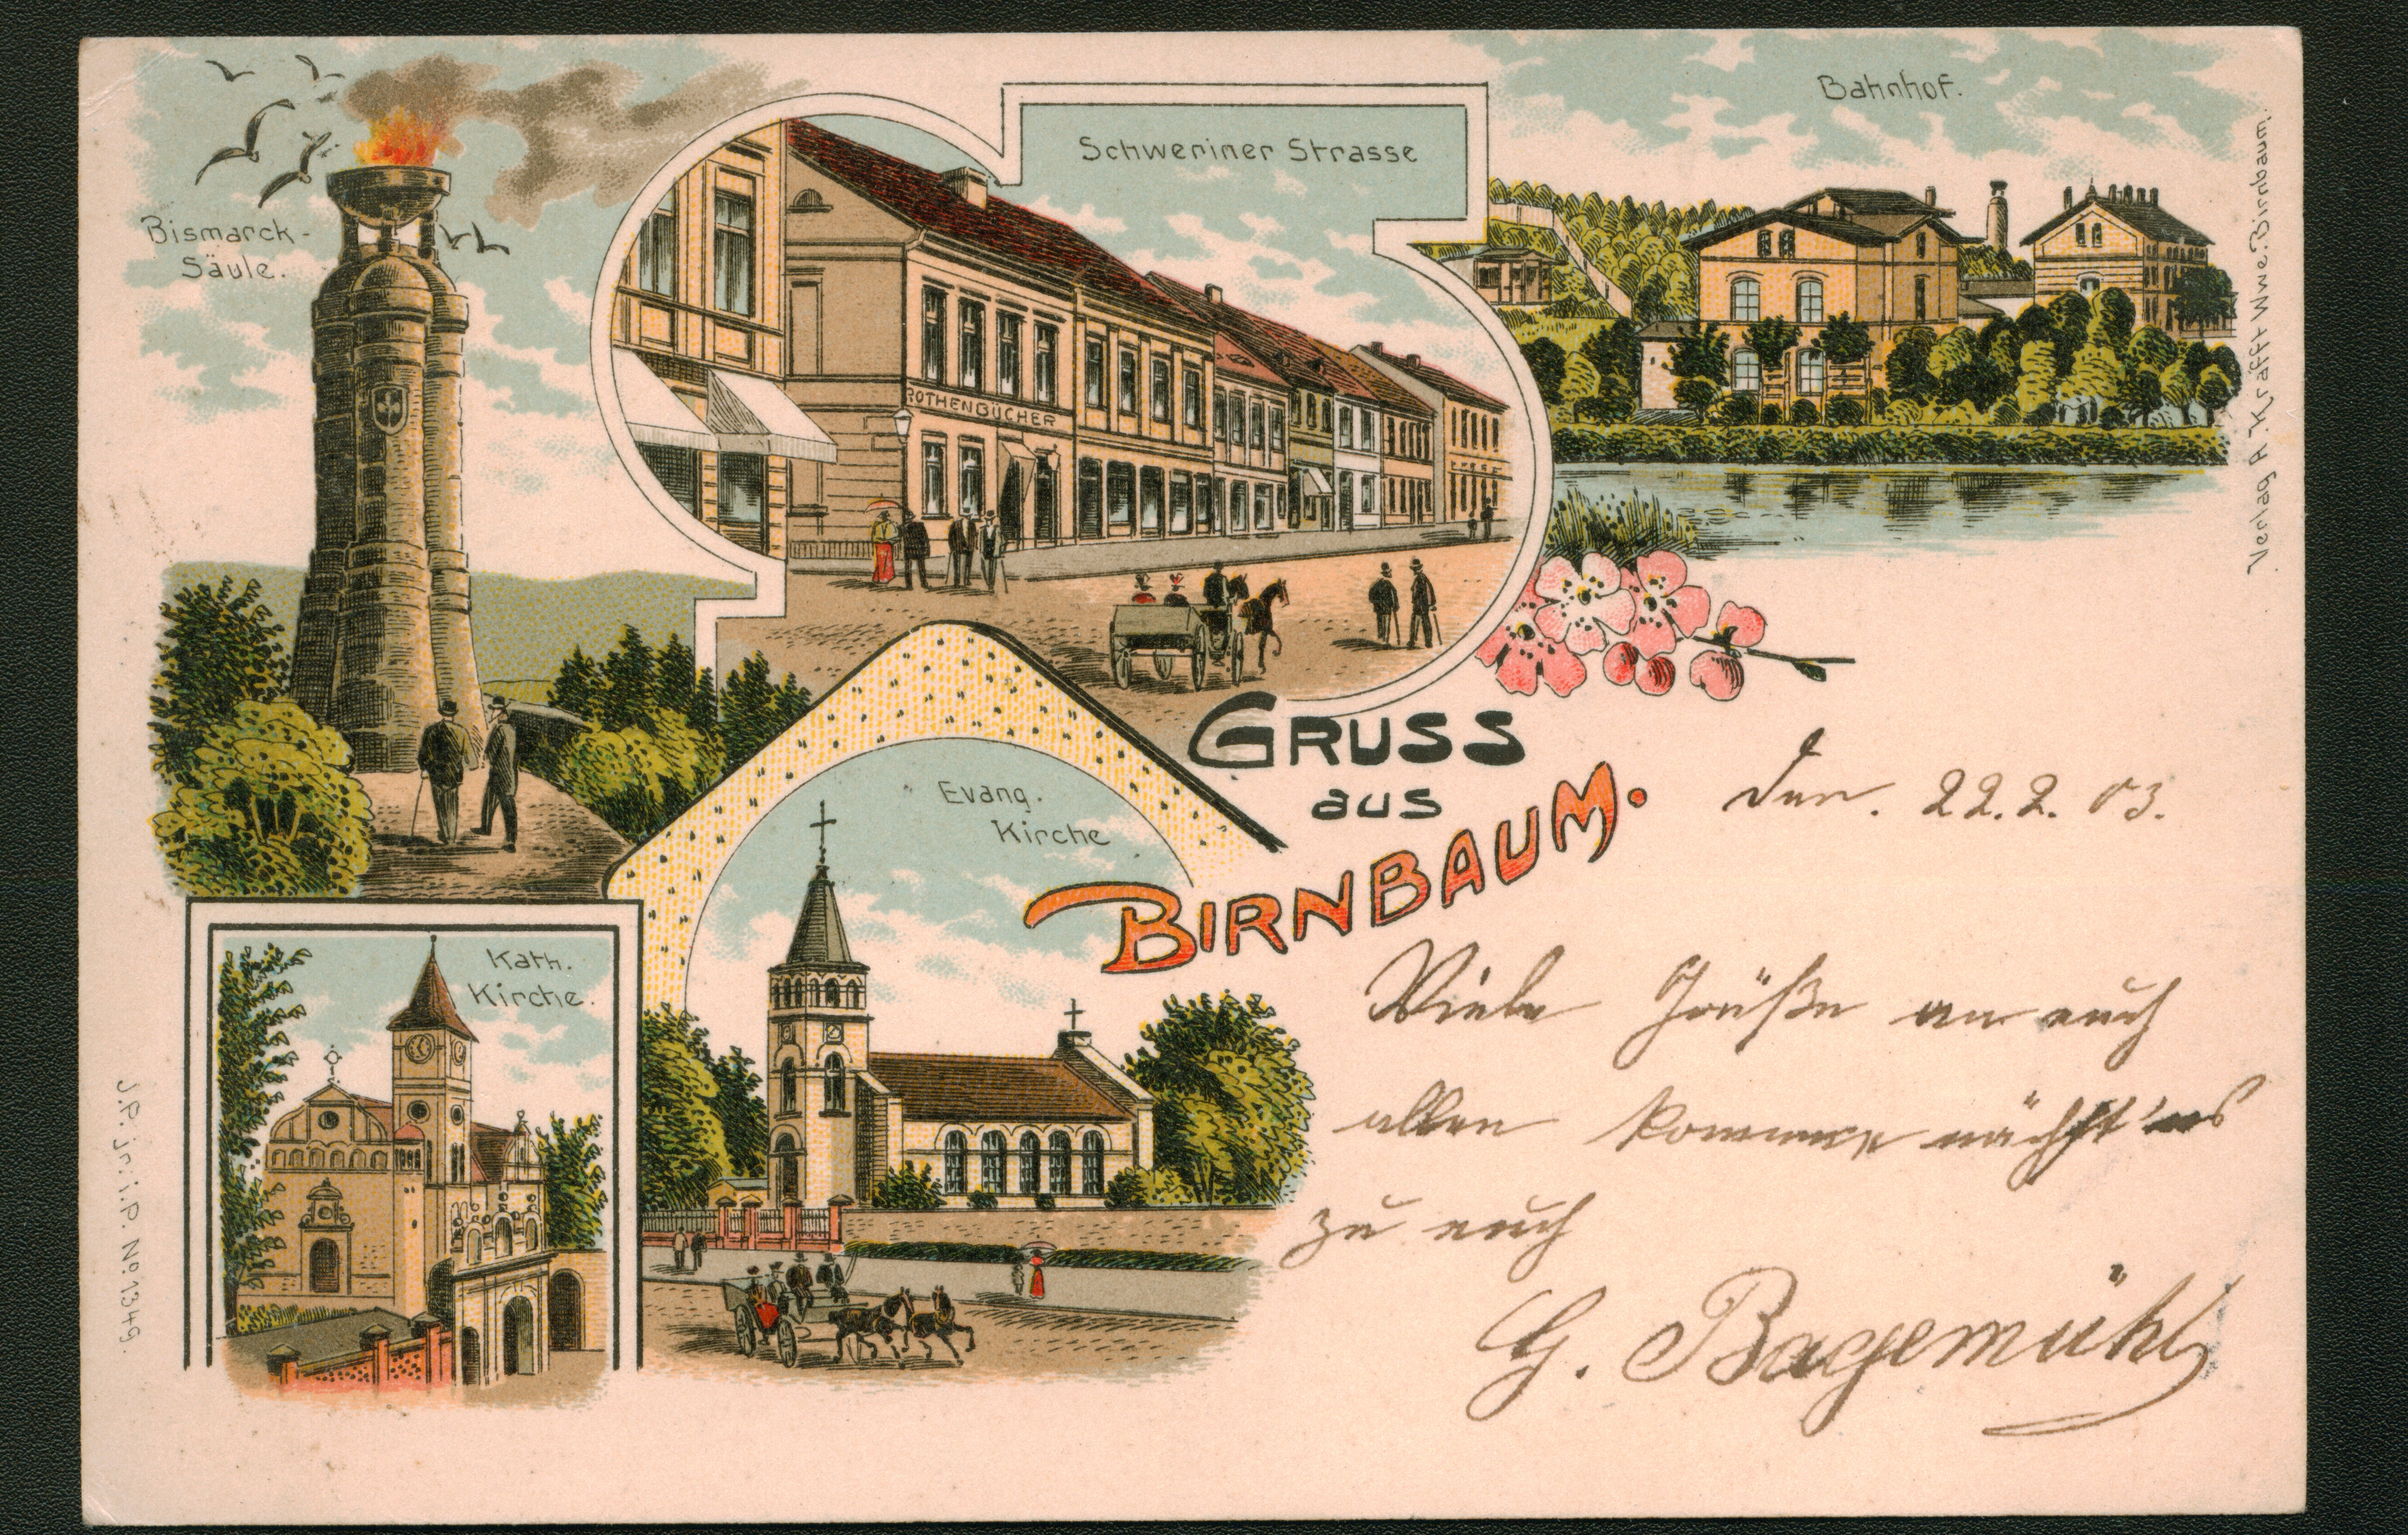 Bismarck-
Säule.
Schweriner Strasse
ROTHENBÜCHER
Bahnhof.
Verlag A. Krafft Wwe. Birnbaum.
GRUSS
aus
BIRNBAUM.
Den. 22.2.03.
Evang.
Kirche
Kath.
Kirche.
Viele Grüße an euch
allen komme nächst'ns
zu euch
G. Bagemühl
J.P. jr. i. P. No. 1349.